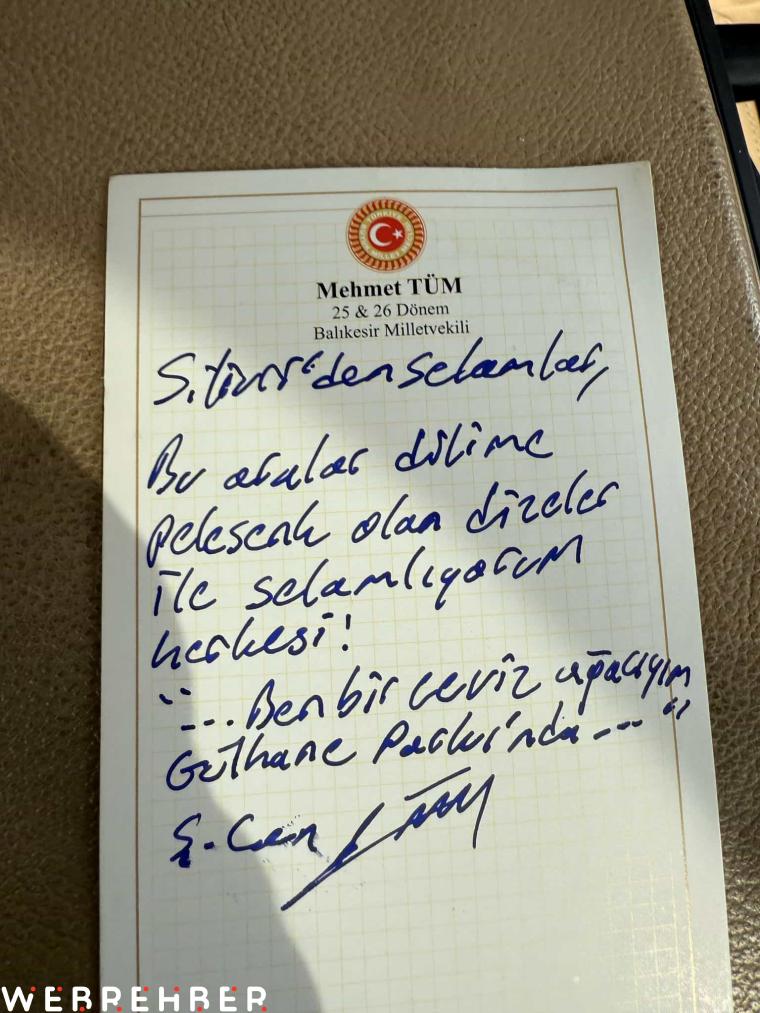 Mehmet TÜM
25 & 26 Dönem
Balıkesir Milletvekili
Silivri'den selamlar,
Bu aralar dilime
pelesenk olan dizeler
ile selamlıyorum
herkesi!
"... Ben bir ceviz ağacıyım
Gülhane Parkı'nda ... "
Ş. Can
WEBREHBER